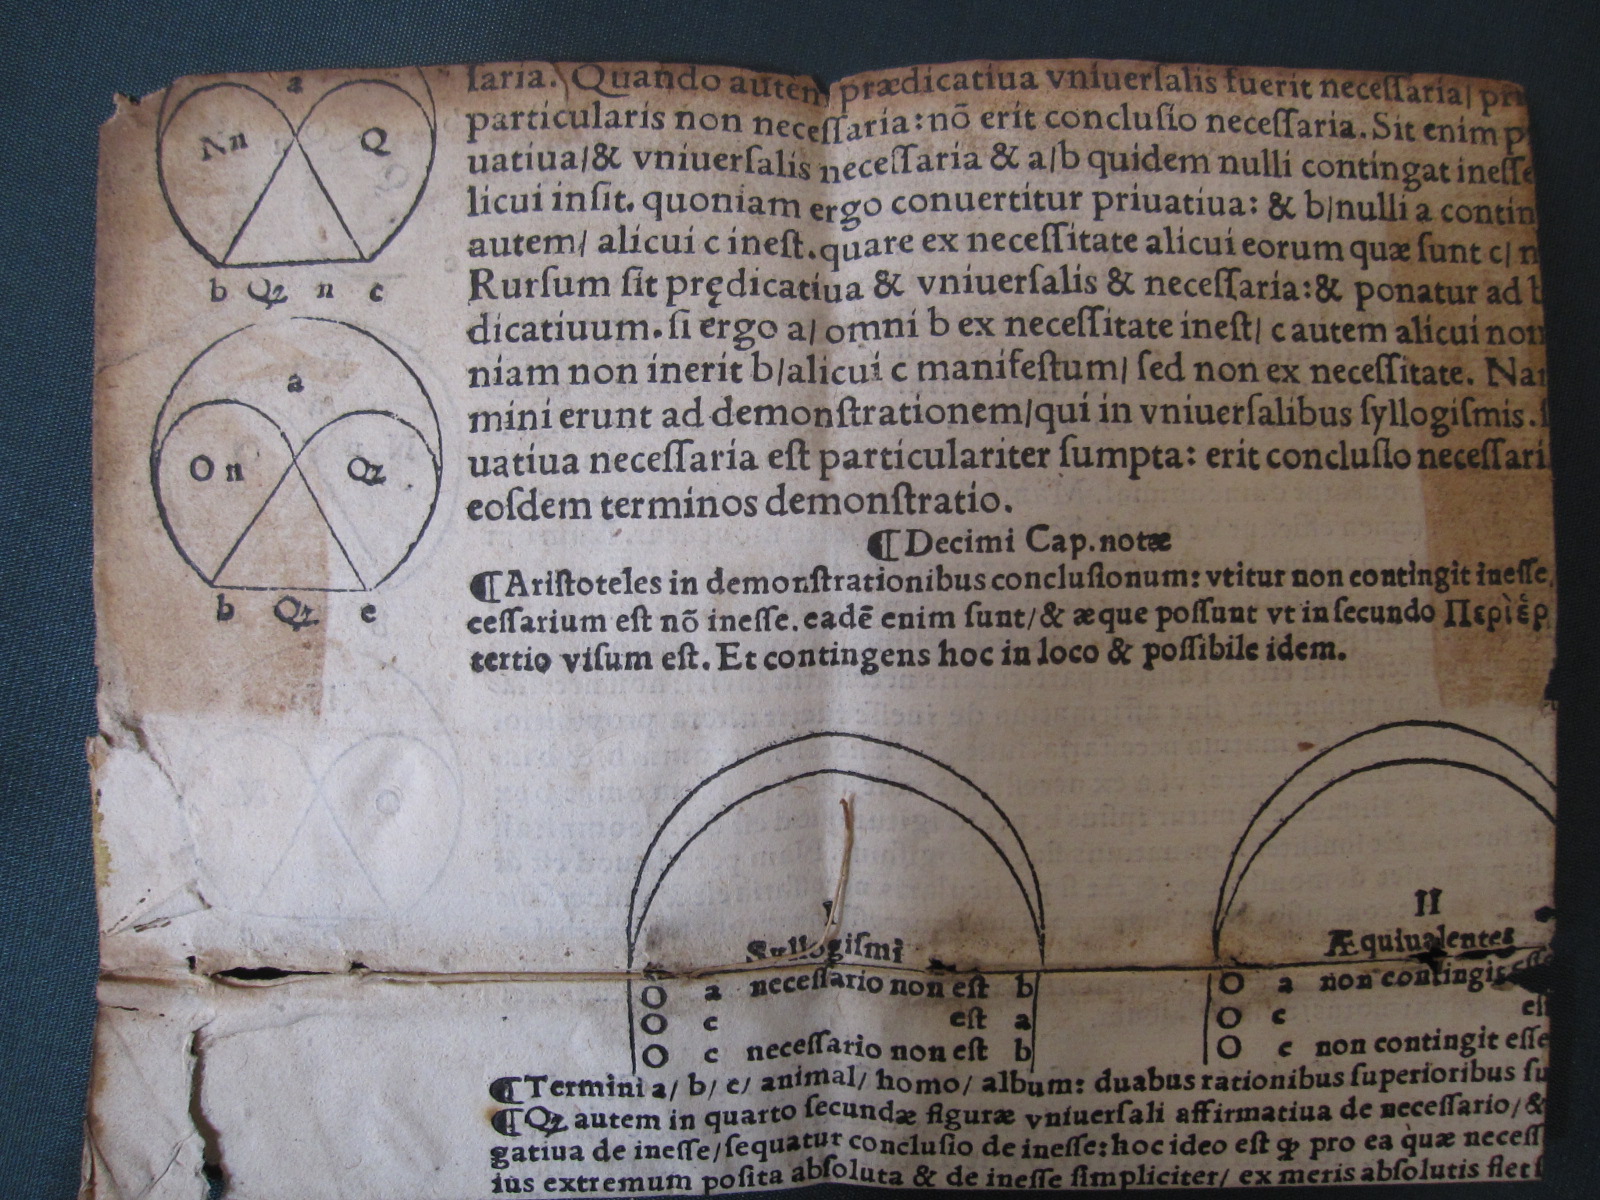 a
Nn Q
b Qz n c
a
O n Qz
b Qz c
ſaria. Quando autem prædicatiua vniuerſalis fuerit neceſſaria/
particularis non neceſſaria: nō erit concluſio neceſſaria. Sit enim
uatiua/& vniuerſalis neceſſaria & a/b quidem nulli contingat ineſſe
licui inſit. quoniam ergo conuertitur priuatiua: & b/nulli a contin
autem/ alicui c ineſt. quare ex neceſſitate alicui eorum quæ ſunt c/ n
Rurſum ſit prędicatiua & vniuerſalis & neceſſaria:& ponatur ad b
dicatiuum. ſi ergo a/ omni b ex neceſſitate ineſt/ c autem alicui non
niam non inerit b/alicui c manifeſtum/ ſed non ex neceſſitate. Nam
mini erunt ad demonſtrationem/qui in vniuerſalibus ſyllogiſmis.
uatiua neceſſaria eſt particulariter ſumpta: erit concluſio neceſſari
eoſdem terminos demonſtratio.
¶Decimi Cap. notæ
¶Ariſtoteles in demonſtrationibus concluſionum: vtitur non contingit ineſſe,
ceſſarium eſt nō ineſſe. eadē enim ſunt/& æque poſſunt vt in ſecundo Περὶ ἑρ
tertio viſum eſt. Et contingens hoc in loco & poſſibile idem.
I
Syllogiſmi
O a neceſſario non eſt b
O c eſt a
O c neceſſario non eſt b
II
Æquiualentes
O a non contingit eſſe
O c eſt
O c non contingit eſſe
¶Termini a/ b/ c/ animal/ homo/ album: duabus rationibus ſuperioribus ſu
¶Qz autem in quarto ſecundæ figuræ vniuerſali affirmatiua de neceſſario/ &
gatiua de ineſſe/ſequatur concluſio de ineſſe: hoc ideo eſt ꝙ pro ea quæ neceſſ
ius extremum poſita abſoluta & de ineſſe ſimpliciter/ ex meris abſolutis fiet